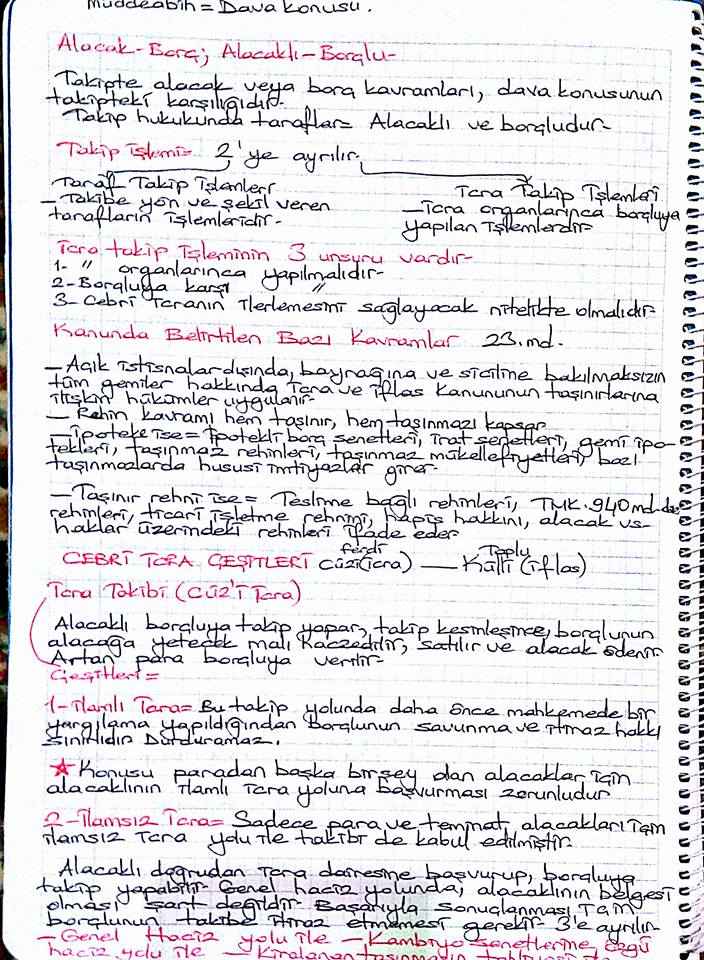 Müddeabih = Dava konusu.
Alacak-Borç; Alacaklı-Borçlu-
Takipte alacak veya borç kavramları, dava konusunun
takipteki karşılığıdır.
Takip hukukunda taraflar= Alacaklı ve borçludur-
Takip işlemi= 2'ye ayrılır.
Taraf Takip İşlemleri
İcra Takip İşlemleri
- Takibe yön ve şekil veren
tarafların işlemleridir-
- İcra organlarınca borçluya
yapılan işlemlerdir-
İcra takip işleminin 3 unsuru vardır-
1- " organlarınca yapılmalıdır-
2- Borçluya karşı "
3- Cebri icranın ilerlemesini sağlayacak nitelikte olmalıdır-
Kanunda Belirtilen Bazı Kavramlar 23.md.
- Açık istisnalar dışında, bayrağına ve siciline bakılmaksızın
tüm gemiler hakkında icra ve iflas Kanununun taşınırlarına
ilişkin hükümler uygulanır-
- Rehin kavramı hem taşınır, hem taşınmazı kapsar
- İpoteke ise= ipotekli borç senetleri, irat senetleri, gemi ipo-
tekleri, taşınmaz rehinleri, taşınmaz mükellefiyetleri, bazı
taşınmazlarda hususi imtiyazlar girer-
- Taşınır rehni ise= Teslime bağlı rehinleri, TMK.940 md-da
rehinleri, ticari işletme rehnini, hapis hakkını, alacak vs-
haklar üzerindeki rehinleri ifade eder
CEBRİ İCRA ÇEŞİTLERİ Cüzi(icra) — Külli (iflas)
ferdi Toplu
İcra Takibi (Cüz'i İcra)
Alacaklı borçluya takip yapar, takip kesinleşince, borçlunun
alacağa yetecek malı haczedilir, satılır ve alacak ödenir
Artan para borçluya verilir-
Çeşitleri=
1- ilamlı İcra= Bu takip yolunda daha önce mahkemede bir
yargılama yapıldığından borçlunun savunma ve itiraz hakkı
sınırlıdır Durduramaz.
★ Konusu paradan başka birşey olan alacaklar için
alacaklının ilamlı icra yoluna başvurması zorunludur
2- ilamsız İcra= Sadece para ve teminat alacakları için
ilamsız icra yolu ile takibi de kabul edilmiştir.
Alacaklı doğrudan icra dairesine başvurup, borçluya
takip yapabilir- Genel haciz yolunda, alacaklının belgesi
olması şart değildir- Başarıyla sonuçlanması için
borçlunun takibe itiraz etmemesi gerekir 3'e ayrılır-
- Genel Haciz yolu ile - Kambiyo senetlerine özgü
haciz yolu ile - Kiralanan taşınmazın tahliyesi